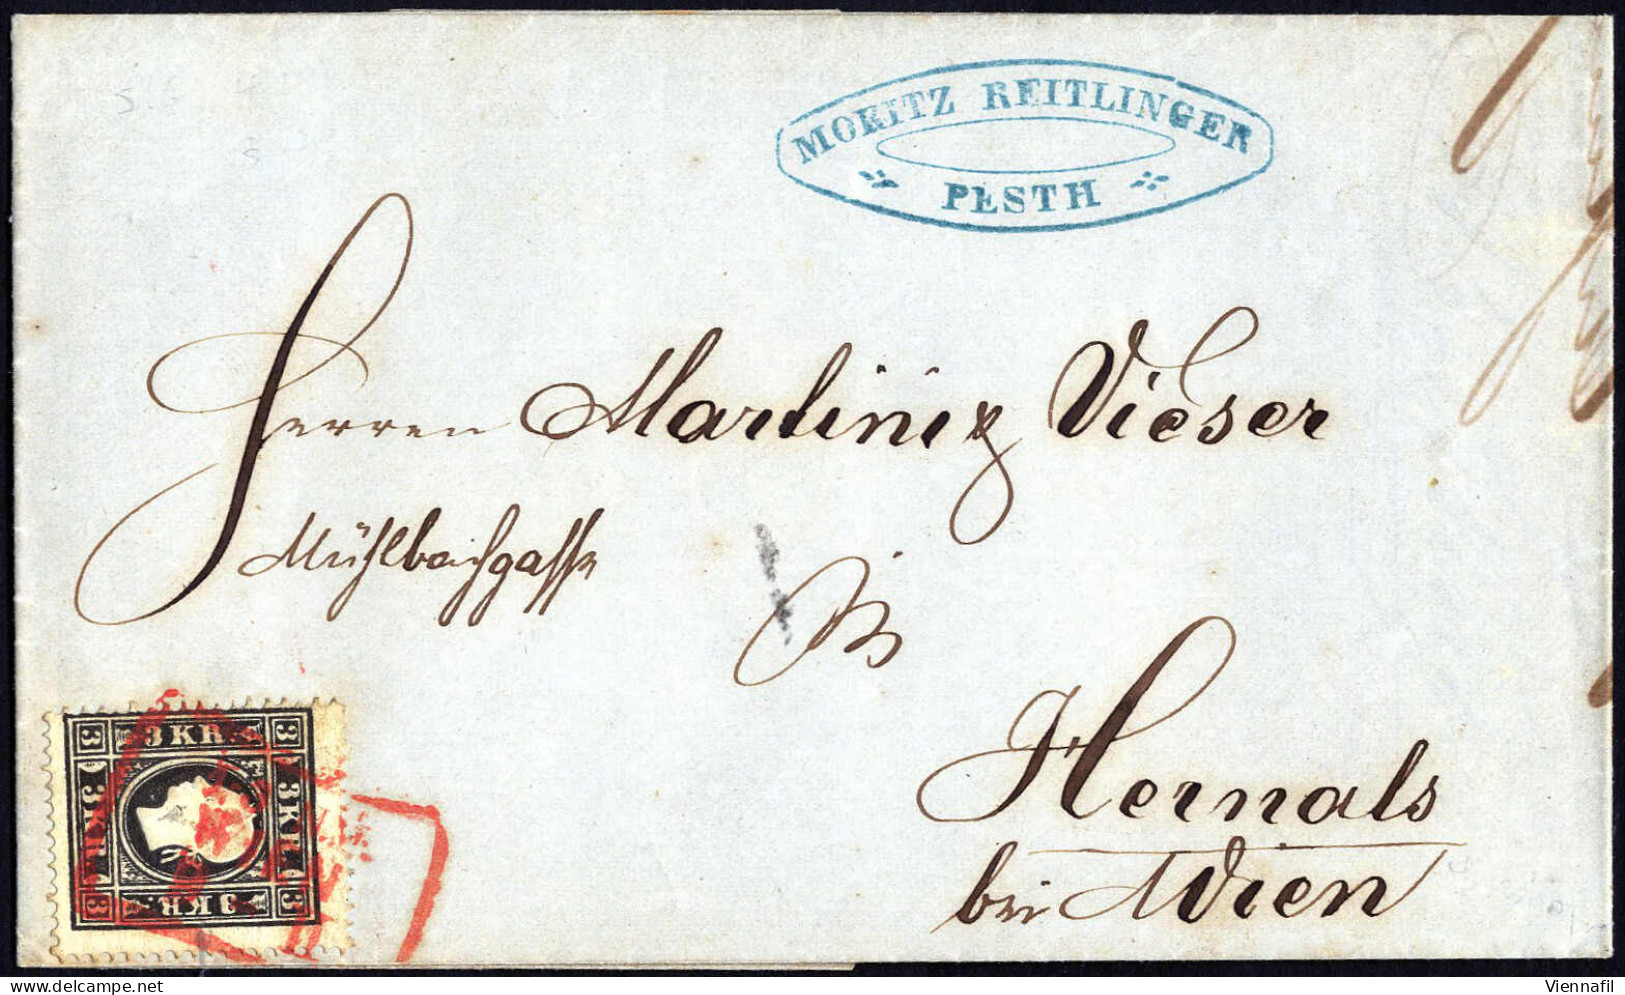 MORITZ REITLINGER
PESTH
Herren Martini & Vieser
Mühlbachgasse
in
Hernals
bei Wien
3 3 KR. 3
3 KR. 3 KR.
3 3 KR. 3
Viennafil